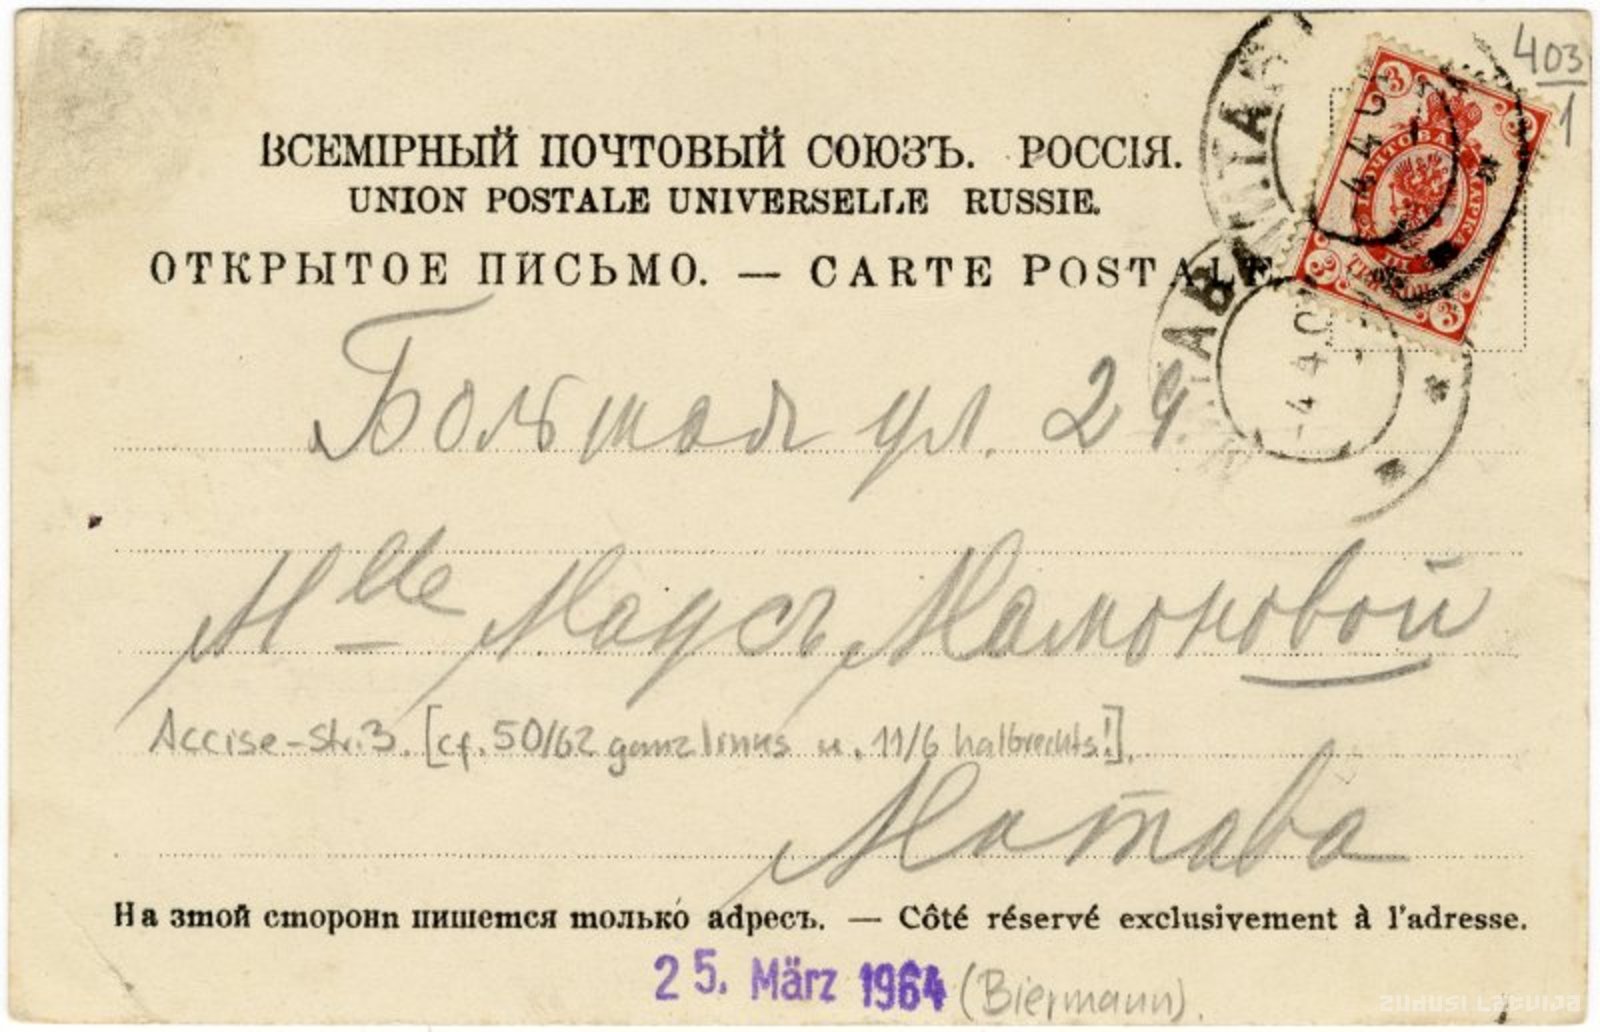 403
1
ВСЕМІРНЫЙ ПОЧТОВЫЙ СОЮЗЪ. РОССІЯ.
UNION POSTALE UNIVERSELLE RUSSIE.
ОТКРЫТОЕ ПИСЬМО. — CARTE POSTALE.
МИТАВА
МИТАВА
3
3
3
3
МАРКА
Большая ул. 24
Mlle Марсъ Мамоновой
Accise-str. 3. [cf. 50/62 ganz links u. 11/6 halbrechts!].
Митава
На этой сторонп пишется только адресъ. — Côté réservé exclusivement à l'adresse.
25. März 1964 (Biermann).
ZUDUSI LATVIJA